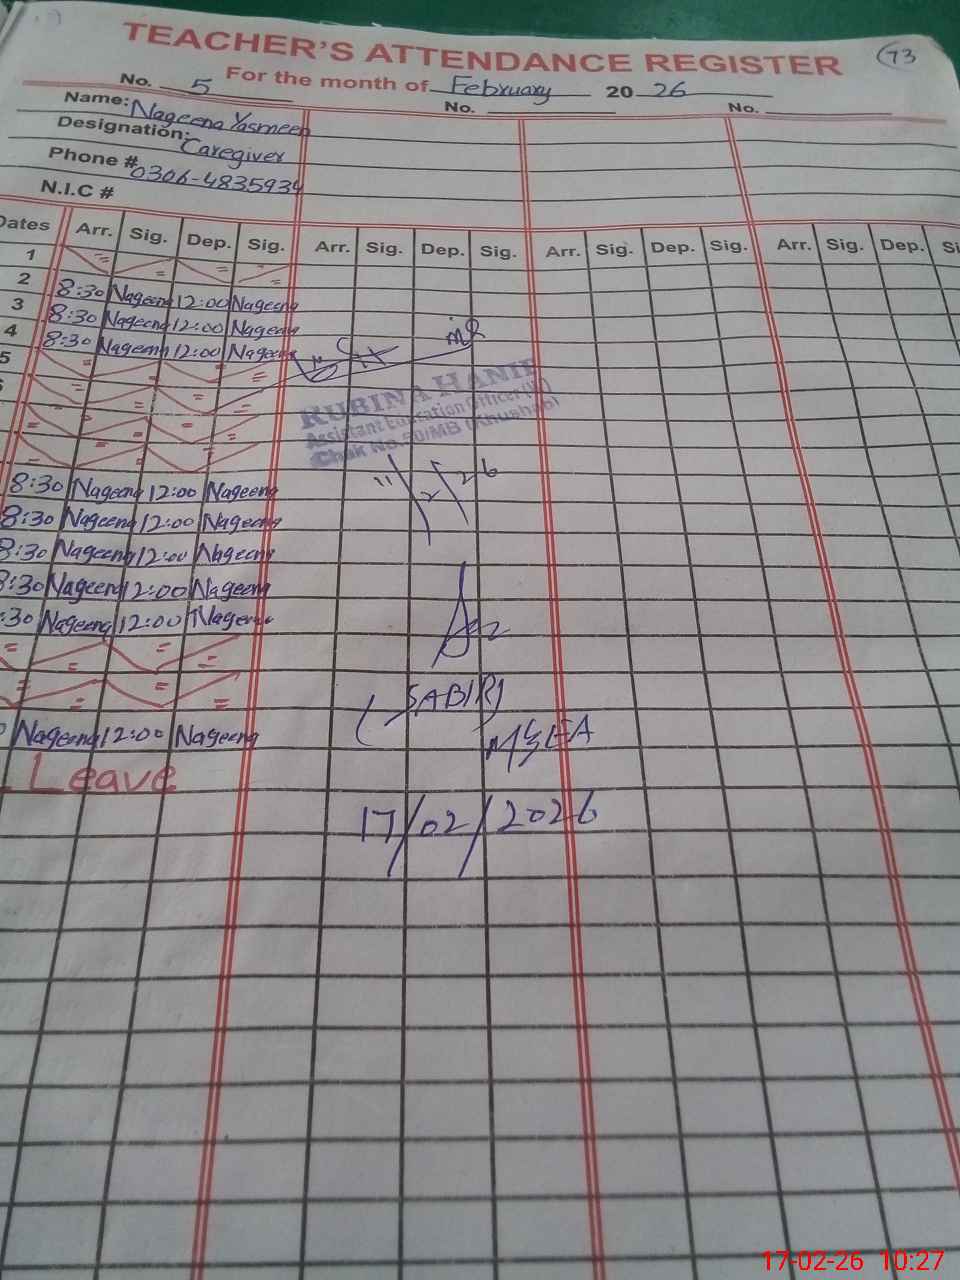 73
TEACHER'S ATTENDANCE REGISTER
No. 5 For the month of February 20 26
Name: Nageena Yasmeen No. No.
Designation: Caregiver
Phone # 0306-4835934
N.I.C #
Dates Arr. Sig. Dep. Sig. Arr. Sig. Dep. Sig. Arr. Sig. Dep. Sig. Arr. Sig. Dep. Si
1 = = = =
2 8:30 Nageena 12:00 Nageena
3 8:30 Nageena 12:00 Nageena
4 8:30 Nageena 12:00 Nageena
5 = = =
= =
= =
= =
RUBINA HANIF
Assistant Education Officer
Chak No.50/MB (Khushab)
11/2/26
8:30 Nageena 12:00 Nageena
8:30 Nageena 12:00 Nageena
8:30 Nageena 12:00 Nageena
8:30 Nageena 12:00 Nageena
:30 Nageena 12:00 Nageena
= = = =
= = = =
(SABIR)
Nageena 12:00 Nageena
MEA
Leave
17/02/2026
17-02-26 10:27